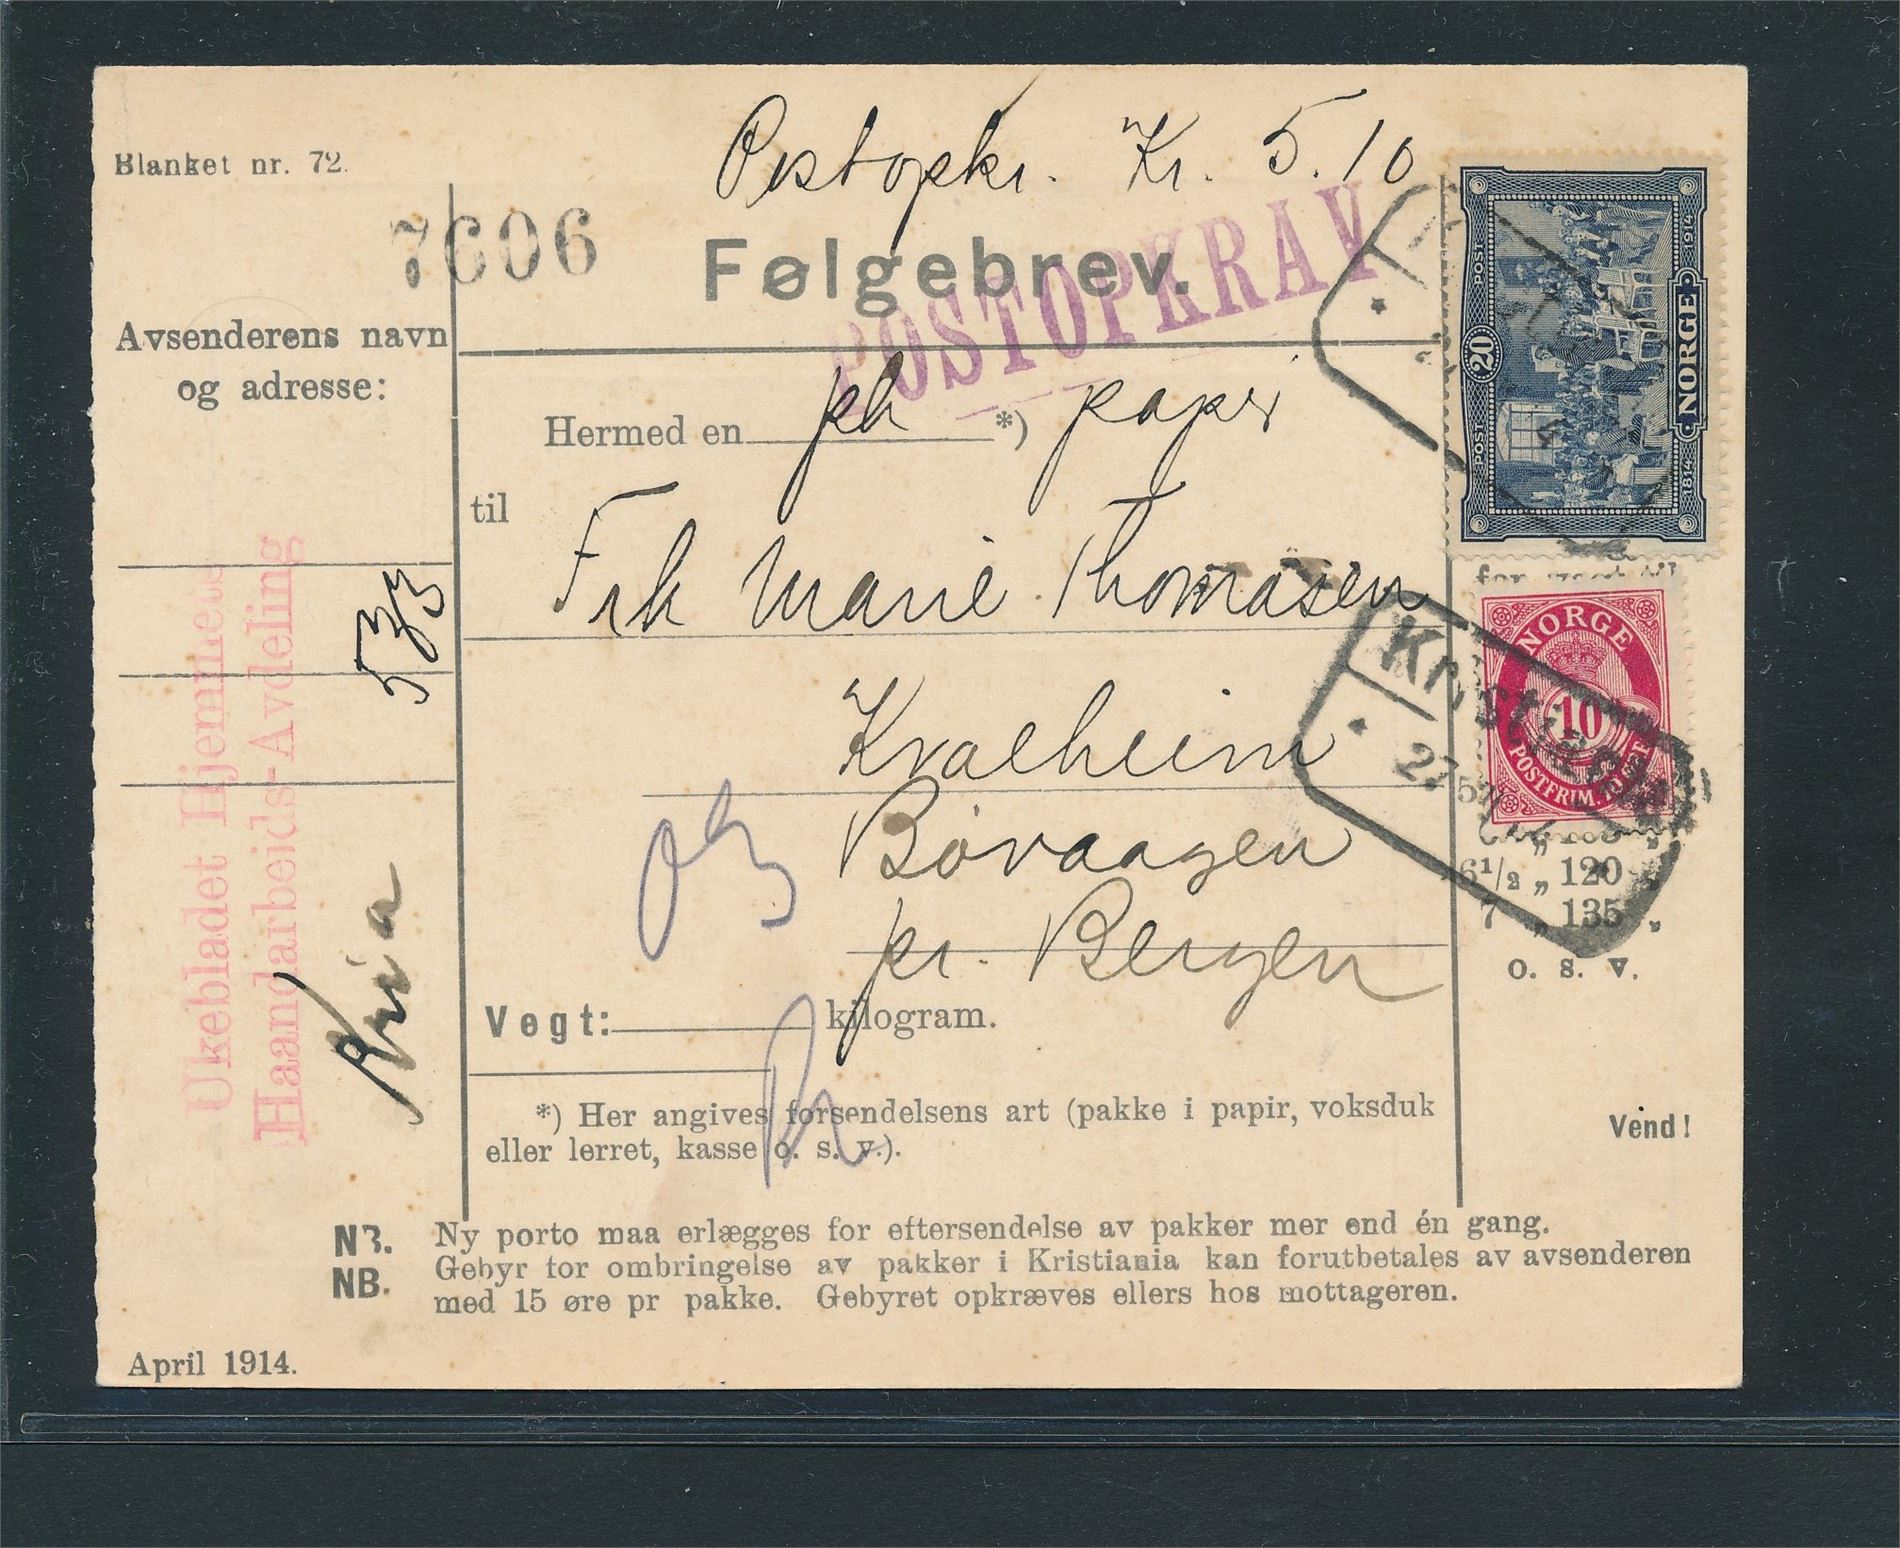 Postopkr. Kr. 5.10
Blanket nr. 72.
7606
Følgebrev.
POSTOPKRAV
Avsenderens navn
og adresse:
Ukebladet Hjemmets
Haandarbeids-Avdeling
533
Kria
Hermed en pk papir *)
til
Frk Marie Thomasen
Kvalheim
Bövaagen
pr. Bergen
Vegt: kilogram.
*) Her angives forsendelsens art (pakke i papir, voksduk
eller lerret, kasse o. s. v.).
POST 20 POST
1814 NORGE 1914
NORGE
10
POSTFRIM. 10 ØRE
Kristiania
27
6 1/2 „ 120 „
7 „ 135 „
o. s. v.
Vend!
NB. Ny porto maa erlægges for eftersendelse av pakker mer end én gang.
NB. Gebyr for ombringelse av pakker i Kristiania kan forutbetales av avsenderen
med 15 øre pr pakke. Gebyret opkræves ellers hos mottageren.
April 1914.